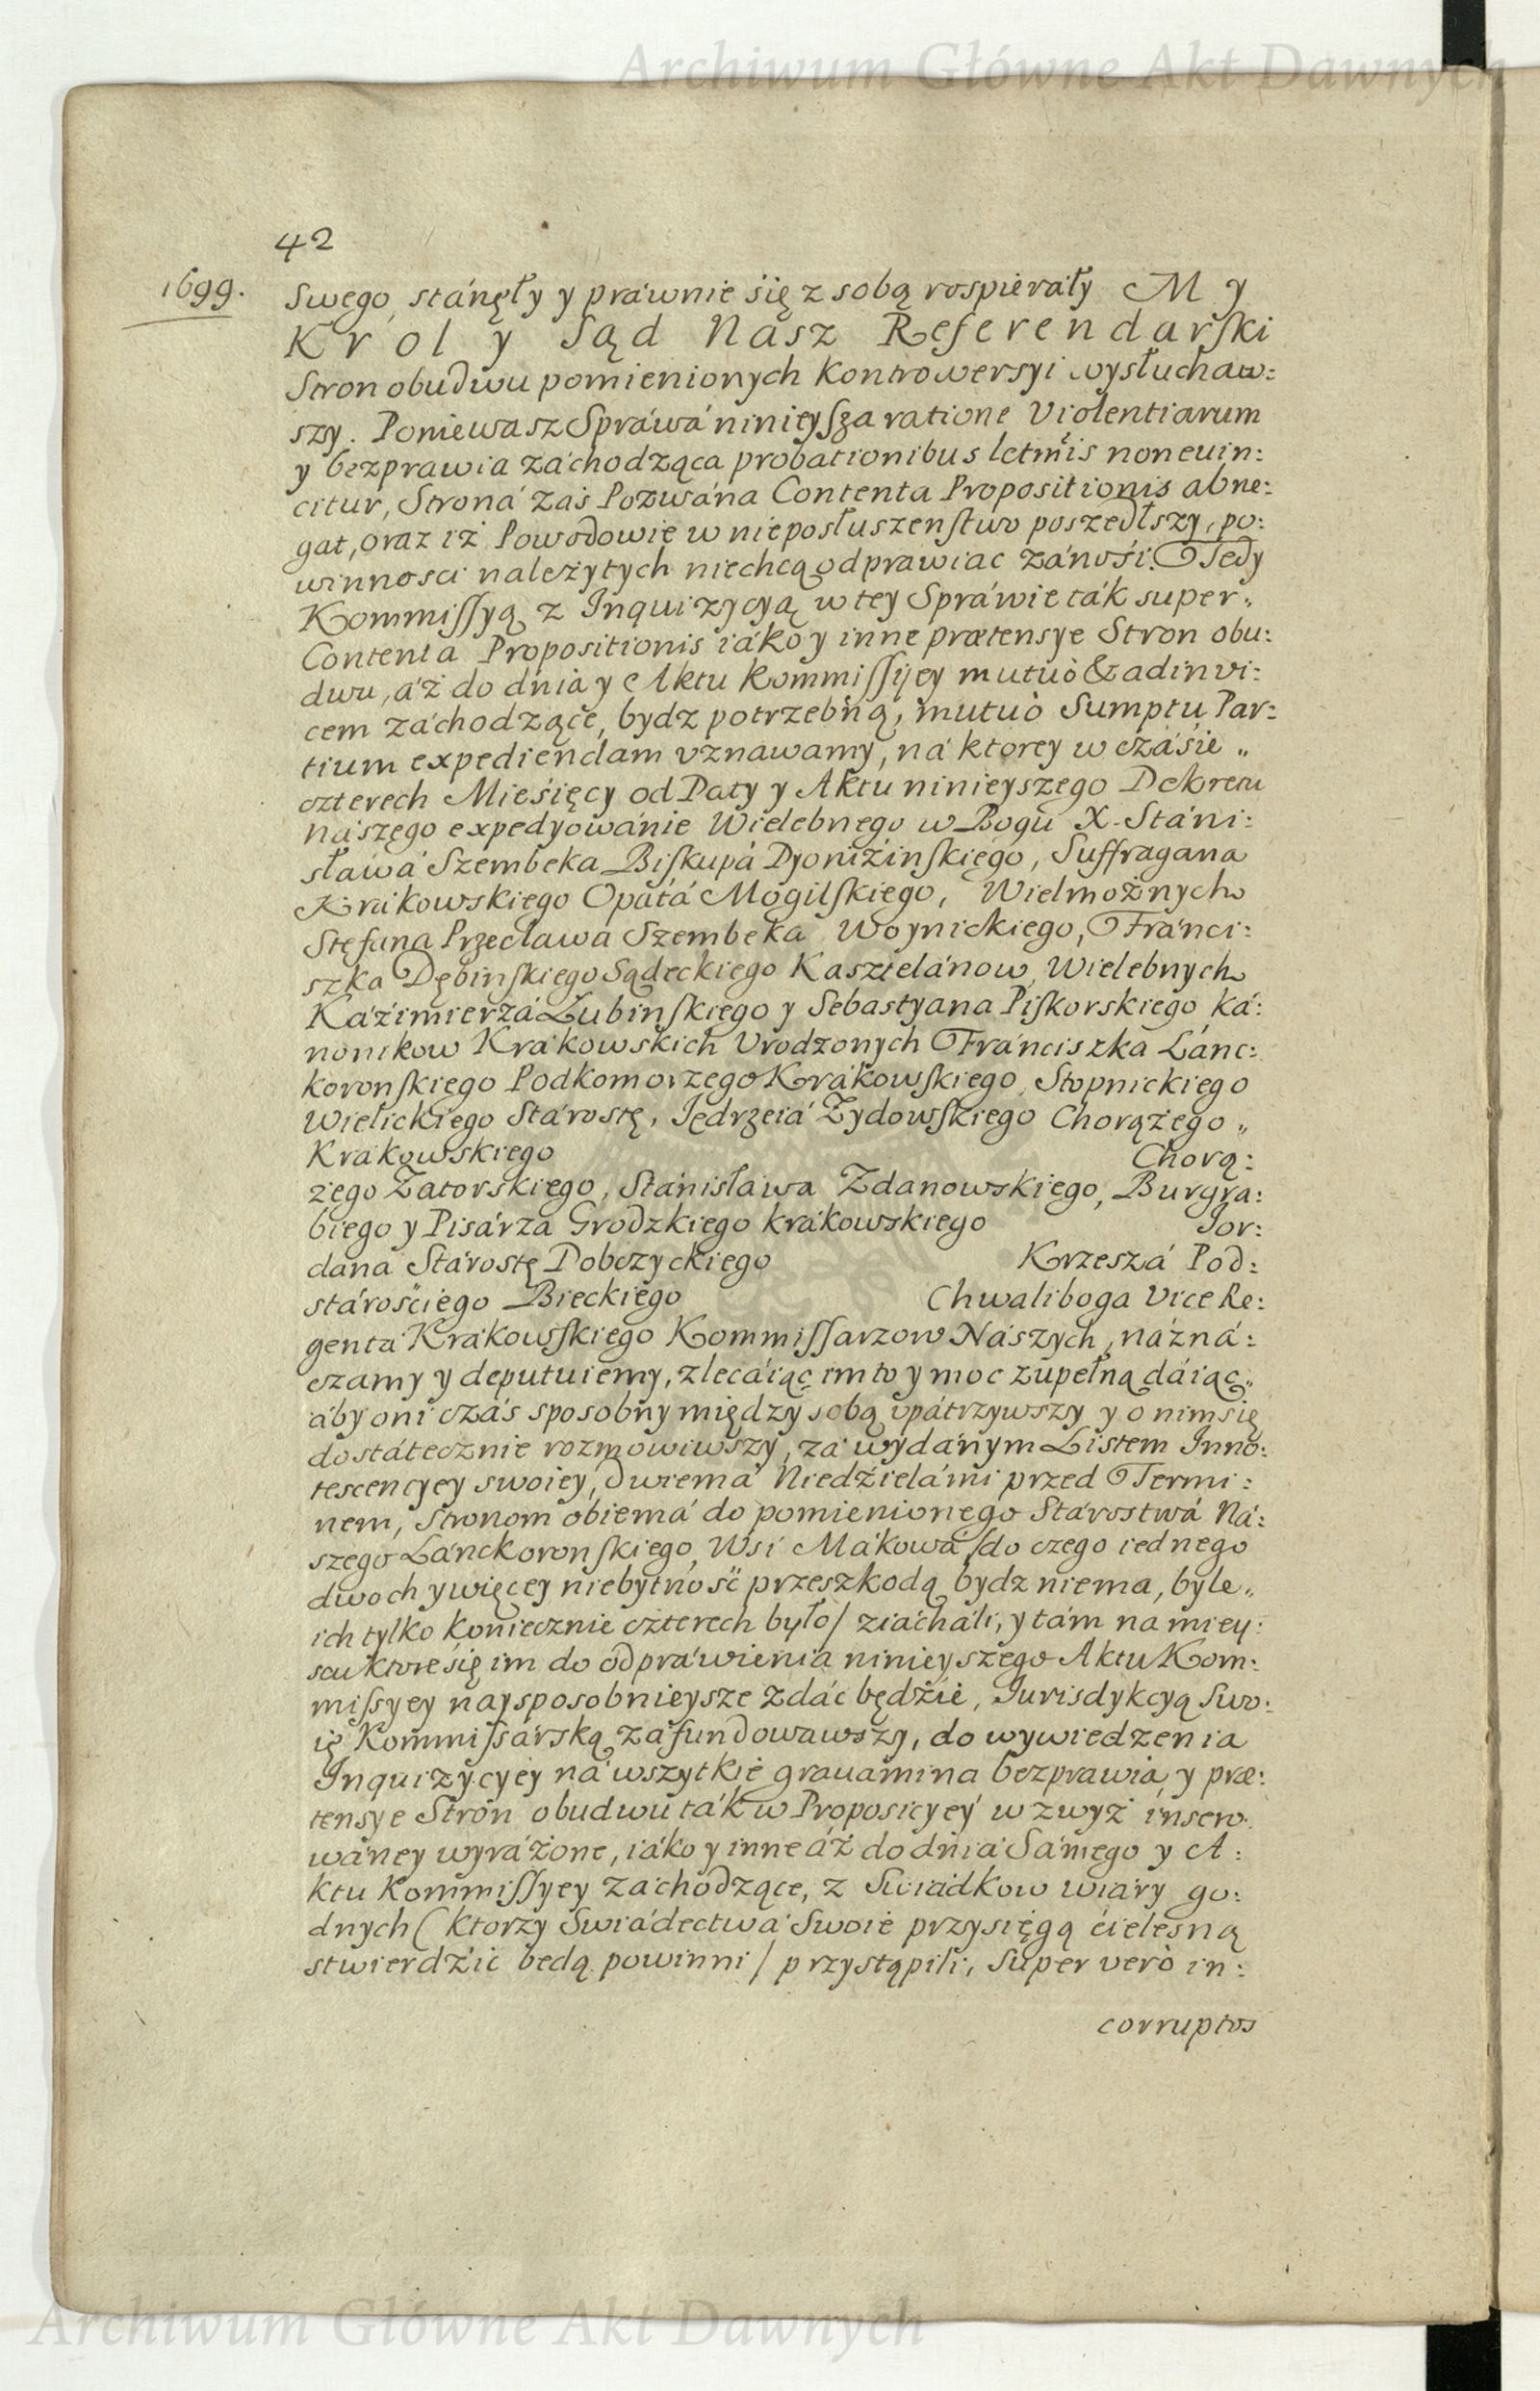 Archiwum Główne Akt Dawnych
42
1699.
Swego, stánęły y práwnie się z sobą rospieráły M y
Krol y Sąd Nász Referendarski
Stron obudwu pomienionych kontrowersyi wysłuchaw:
szy. Poniewasz Spráwá ninieysza ratione Violentiarum
y bezprawia záchodząca probationibus letmis non evin:
citur, Stroná zaś Pozwána Contenta Propositionis abne:
gat, oraz iż Powodowie w nieposłuszenstwo poszedłszy, po:
winnosci należytych niechcą odprawiac zánośi. Tedy
Kommissyą z Inquizycyą w tey Spráwie ták super„
Contenta Propositionis iáko y inne prætensye Stron obu:
dwu, áż do dnia y Aktu Kommissyey mutuò & adinvi:
cem záchodzące, bydz potrzebną, mutuò Sumptu Par:
tium expediendam vznawamy, ná ktorey w czáśie „
czterech Mieśięcy od Daty y Aktu ninieyszego Dekretu
nászego expedyowánie Wielebnego w Bogu X. Stáni:
sławá Szembeka Biskupá Dyoniżinskiego, Suffragana
Krakowskiego Opatá Mogilskiego, Wielmożnych
Stefana Przecława Szembeka Woynickiego, Fránci:
szka Dębinskiego Sądeckiego Kasztelánow, Wielebnych
Káźimierzá Łubinskiego y Sebastyana Piskorskiego ká:
nonikow Krákowskich Vrodzonych Fránciszka Lánc:
koronskiego Podkomorzego Krákowskiego, Stopnickiego
Wielickiego Stárostę, Iędrzeiá Żydowskiego Chorążego „
Krákowskiego Chorą:
żego Zatorskiego, Stánisławá Zdanowskiego, Burgra:
biego y Pisárza Grodzkiego krákowskiego Jor:
dana Stárostę Dobczyckiego Krzeszá Pod:
stárośćiego Bieckiego Chwaliboga Vice Re:
genta Krákowskiego Kommissarzow Nászych, názná:
czamy y deputuiemy, zlecáiąc im to y moc zupełną dáiąc„
áby oni czás sposobny między sobą vpátrzywszy y o nim się
dostátecznie rozmowiwszy, zá wydánym Listem Inno:
tescencyey swoiey, dwiemá Niedźielámi przed Termi:
nem, Stronom obiemá do pomienionego Stárostwá Ná:
szego Lánckoronskiego, Wsi Mákowá /do czego iednego
dwoch y więcey niebytność przeszkodą bydz niema, byle„
ich tylko koniecznie czterech było/ ziácháli, y tám na miey:
scu ktore się im do odpráwienia ninieyszego Aktu Kom:
missyey naysposobnieysze zdác będźie, Iurisdykcyą Swo:
ię Kommissárską zafundowawszy, do wywiedzenia
Inquizycyey ná wszytkie gravamina bezprawia y præ:
tensye Stron obudwu ták w Proposicyey w zwyż insero:
wáney wyrażone, iáko y inne áż do dnia Sámego y A:
ktu Kommissyey záchodzące, z Swiadkow wiáry go:
dnych ( ktorzy Swiádectwá Swoie przysięgą ćielesną
stwierdźic bedą powinni / przystąpili, Super verò in:
corruptos
Archiwum Główne Akt Dawnych